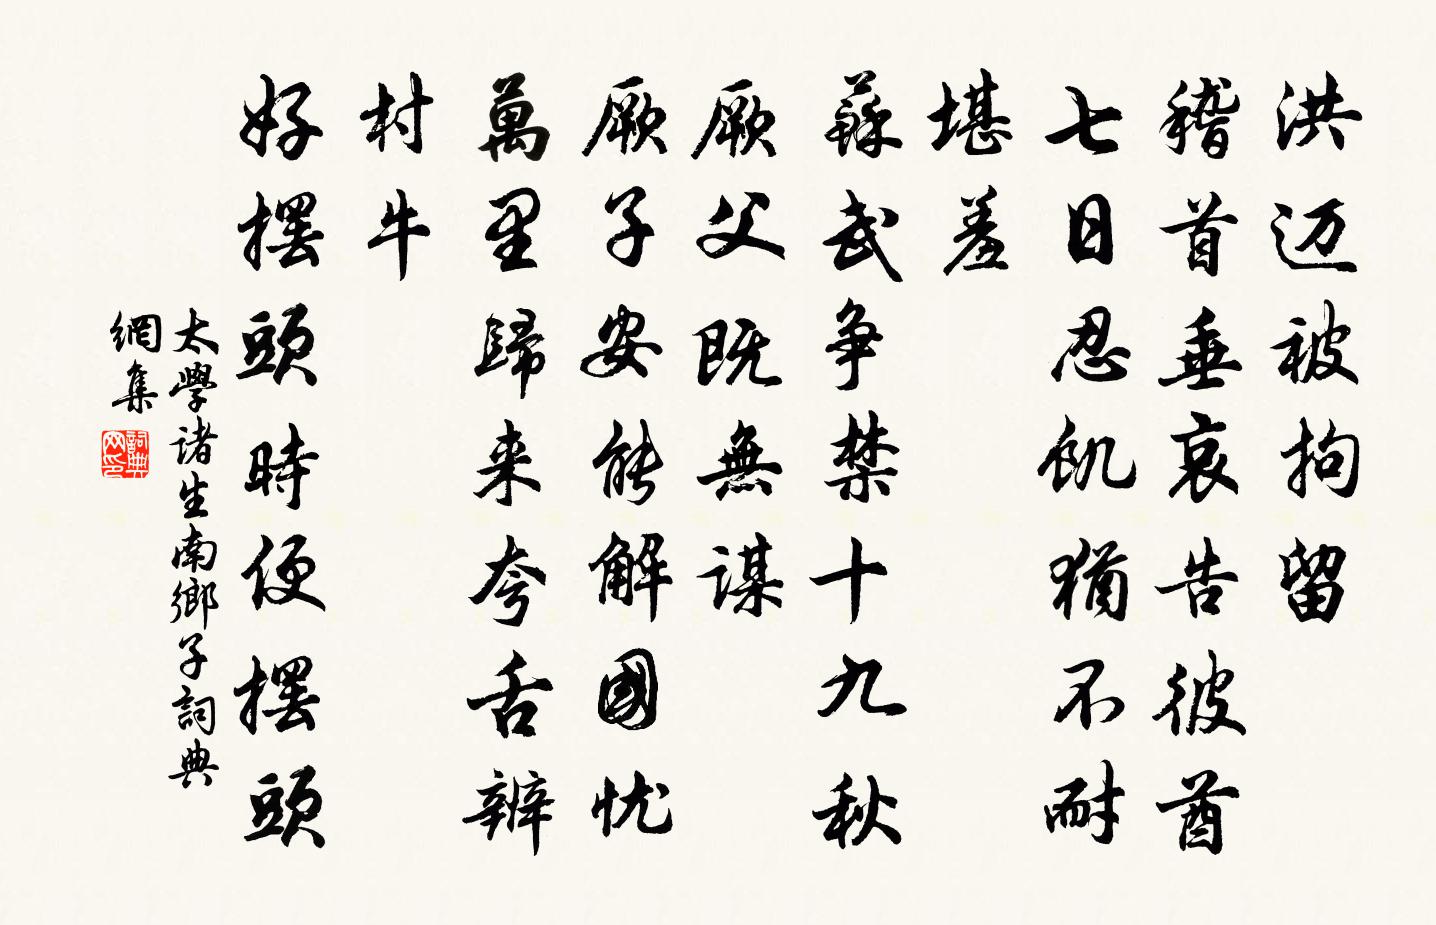 洪迈被拘留
稽首垂哀告彼酋
七日忍飢猶不耐
堪羞
蘇武争禁十九秋
厥父既無謀
厥子安能解國忧
萬里歸来夸舌辨
村牛
好摆頭時便摆頭
太學諸生南鄉子詞典
網集
詞典
网印